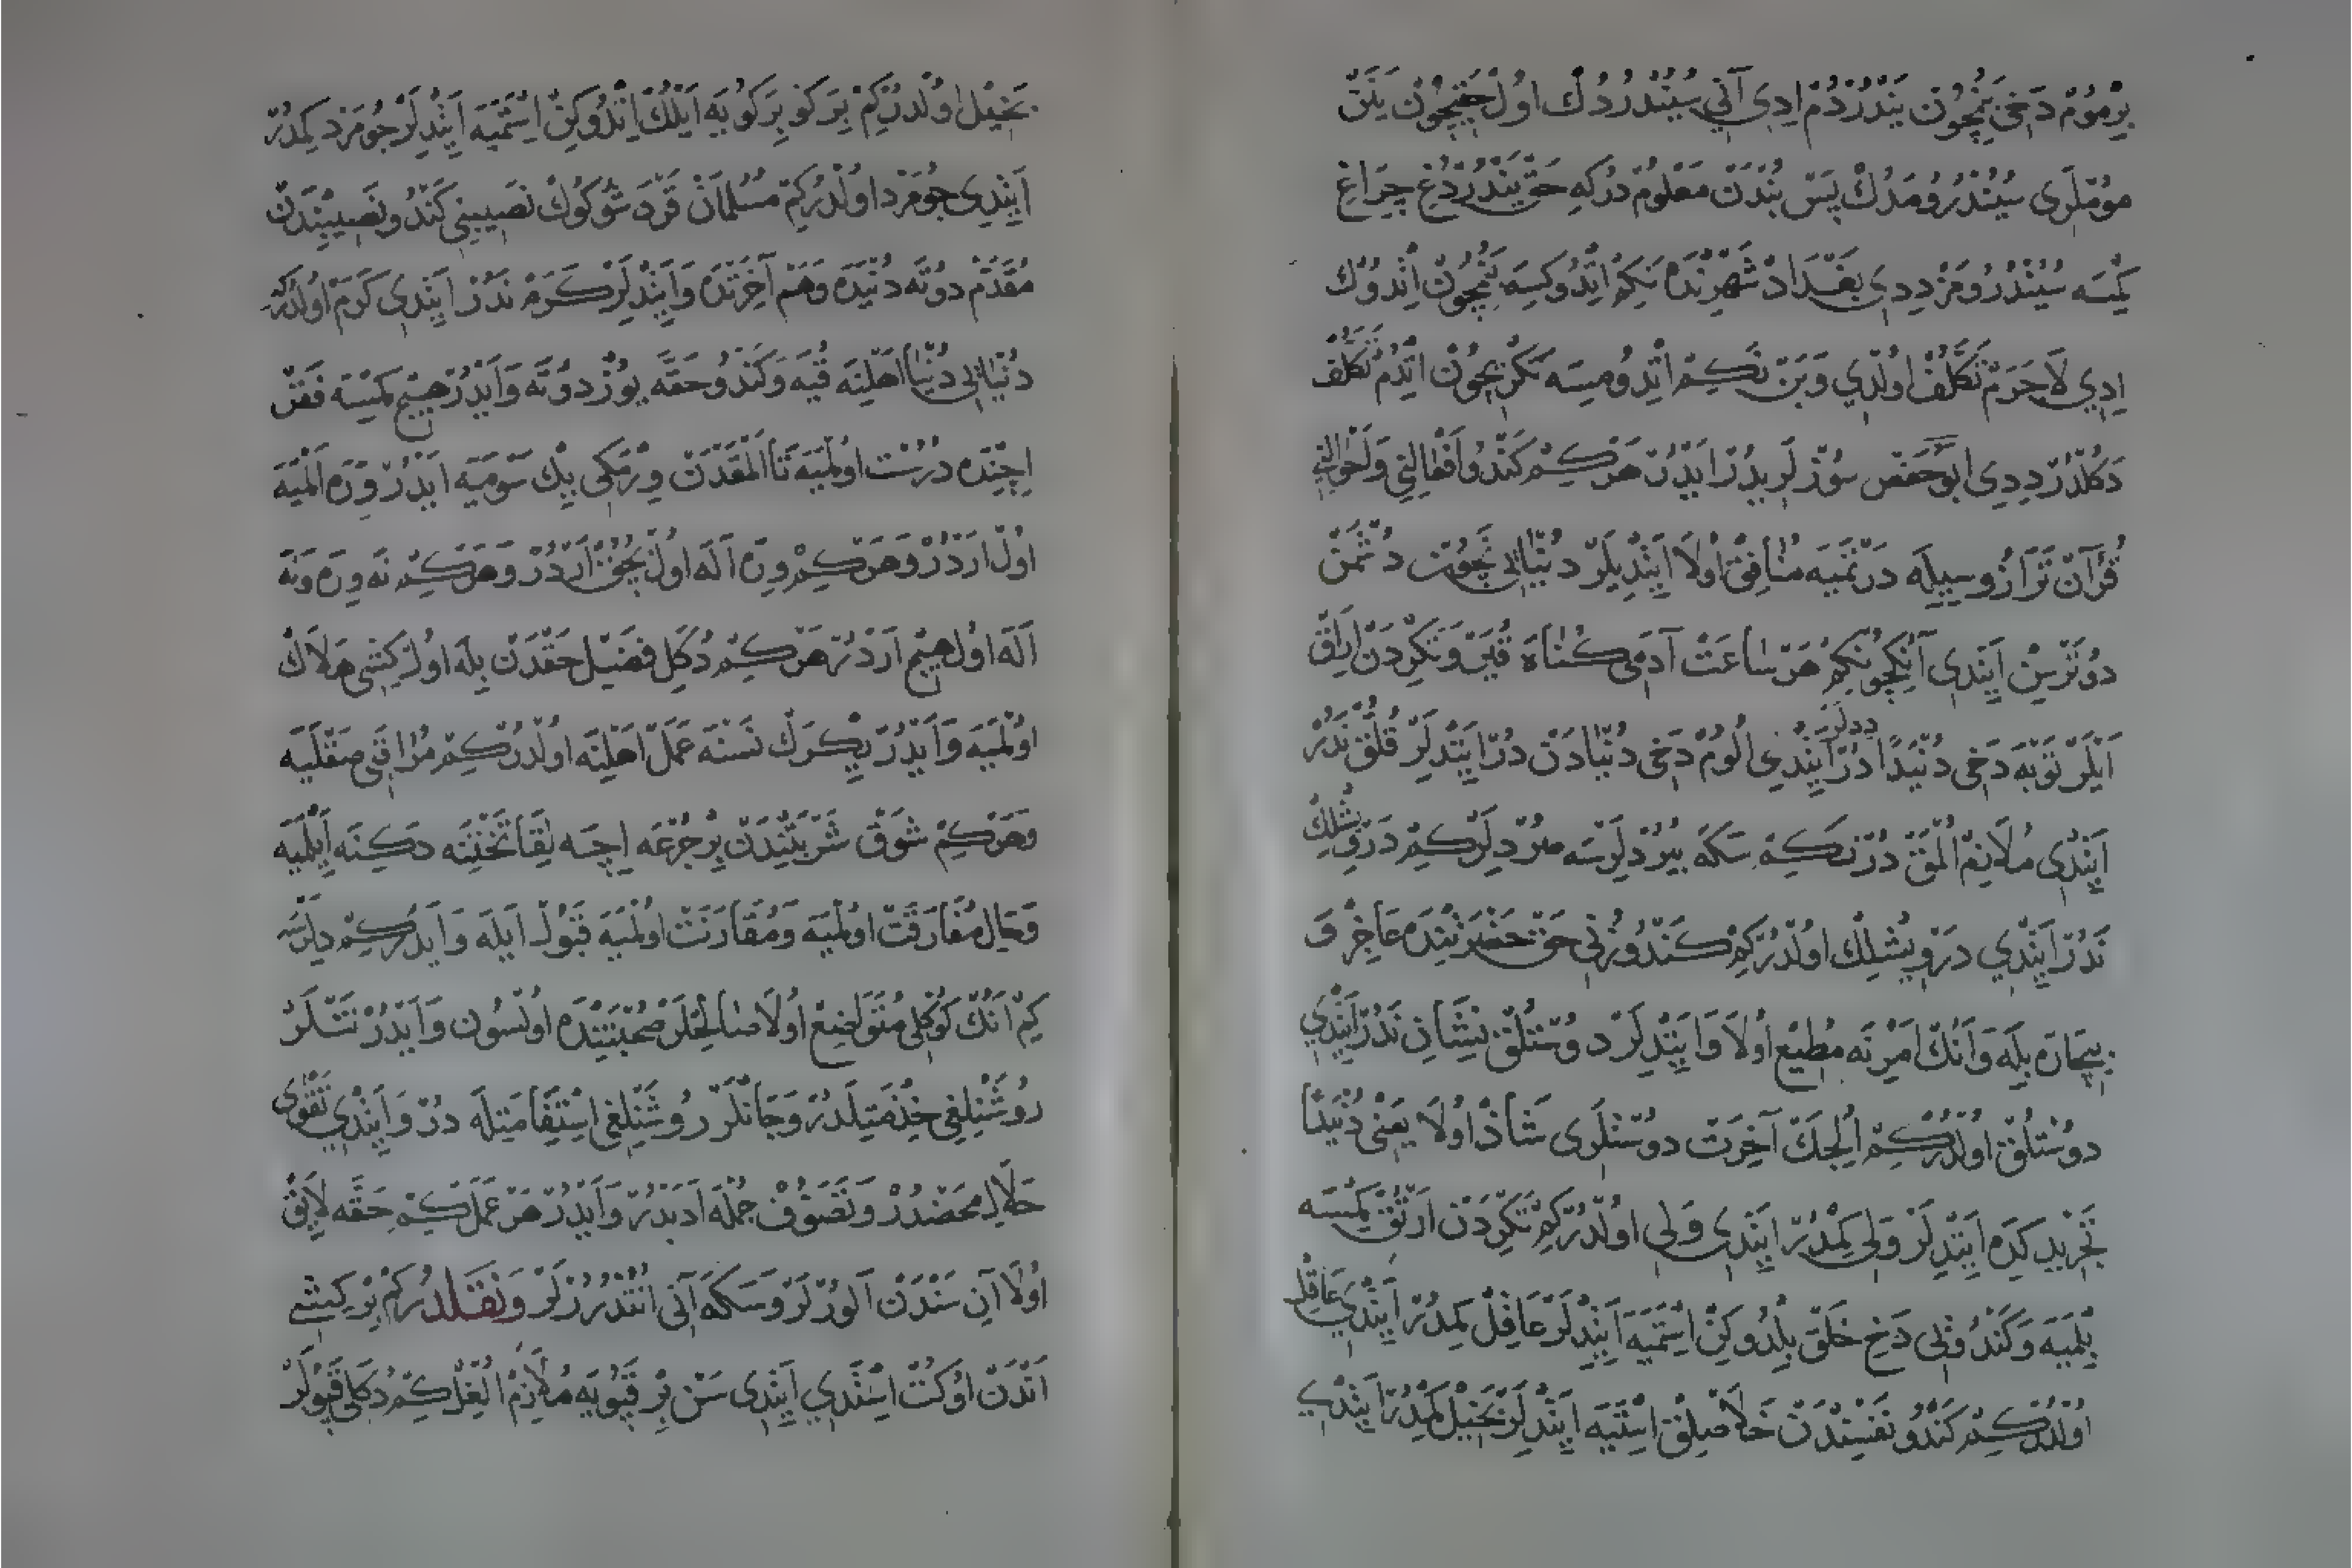 بر موم دخی بنمچون یندردم ادی آنی سیندردك اول حقیچون ینن
موملری سیندرومدك پس بندن معلوم درکه حق یندردغی چراغی
کمسه سیندرومز ددی بغداد شهرنده نکم اتدوکسه بنمچون اتدوك
ادی لاجرم تکلف اولدی وبن نکم اتدومسه تکریچون اتدم تکلف
دکلدر ددی ابو حفص سوزلریدر ایدر هرکم کندو افعالنی واحوالنی
قرآن ترازوسییله درتمیه منافق اولا ایتدیلر دنیایی نچون دشمن
دوترسن ایتدی آنکچونکم هر ساعت آدمی کناه قیی وتکریدن ایراق
ایلر توبه دخی دنیدا در ددلر ایتدی الوم دخی دنیادن در ایتدلر قللق ندر
ایتدی ملازم المق در نکم سکه بیردلرسه صردلرکم درویشلك
ندر ایتدی درویشلك اولدرکم کندوزنی حق حضرتنده عاجز و
بیچاره بیله وانك امرنه مطیع اولا وایتدلر دوستلق نشانی ندر ایتدی
دوستلق اولدرکم الیجك آخرت دوستلری شاذ اولا یعنی دنیدا
تجرید کده ایتدلر ولی کمدر ایتدی ولی اولدرکم تکریدن ارتق کمسه
بلمیه وکندوثی دخ خلق بلدوکن استمیه ایتدلر عاقل کمدر ایتدی عاقل
اولدرکم کندو نفسندن خلاصلق استیه ایتدلر بخیل کمدر ایتدی
بخیل اولدرکم بر کو بر کویه ایلك اتدوکن استمیه ایتدلر جومرد کمدر
ایتدی جومرد اولدرکم مسلمان قرد شوکوك نصیبنی کندو نصیبندن
مقدم دوته دنیده وهم آخرتده وایتدلر کرم ندر ایتدی کرم اولدرکم
دنیایی دنیا اهلنه قیه وکندو حقه یوز دوته وایدر هیچ کمسه فقر
اچنده درست اولمیه تا المقدن ورمکی یك سومیه ایدر وره المیه
اول اردر وهرکم وره اله اول بچق اردر وهرکم نه وره ونه
اله اول هیچ اردر هرکم دکل فضیل حقدن بله اول کشی هلاك
اولمیه وایدر یکرك نسنه عمل اهلنه اولدرکم مراقبی صقلیه
وهرکم شوق شربتندن بر جرعه اچه لقا تختنه دکنه ایلمیه
وحال مفارقت اولمیه ومقارنت اولمیه قبول ایله وایدرکم دیلرسه
کم انك کوکلی متواضع اولا صالحلر صحبتنده اولسون وایدر تنلر
روشنلغی خذمتیلدر وجانلر روشنلغی استقامتله در وایتدی تقوی
حلال محضدر وتصوف جمله ادبدر وایدر هر عملکم حقه لایق
اولا آنی سندن الورلر وسکه آنی انتدررلر ونقلدرکم بر کشی
اندن اوکت استدی ایتدی سن بر قپویه ملازم الغلکم دکلی قپولر